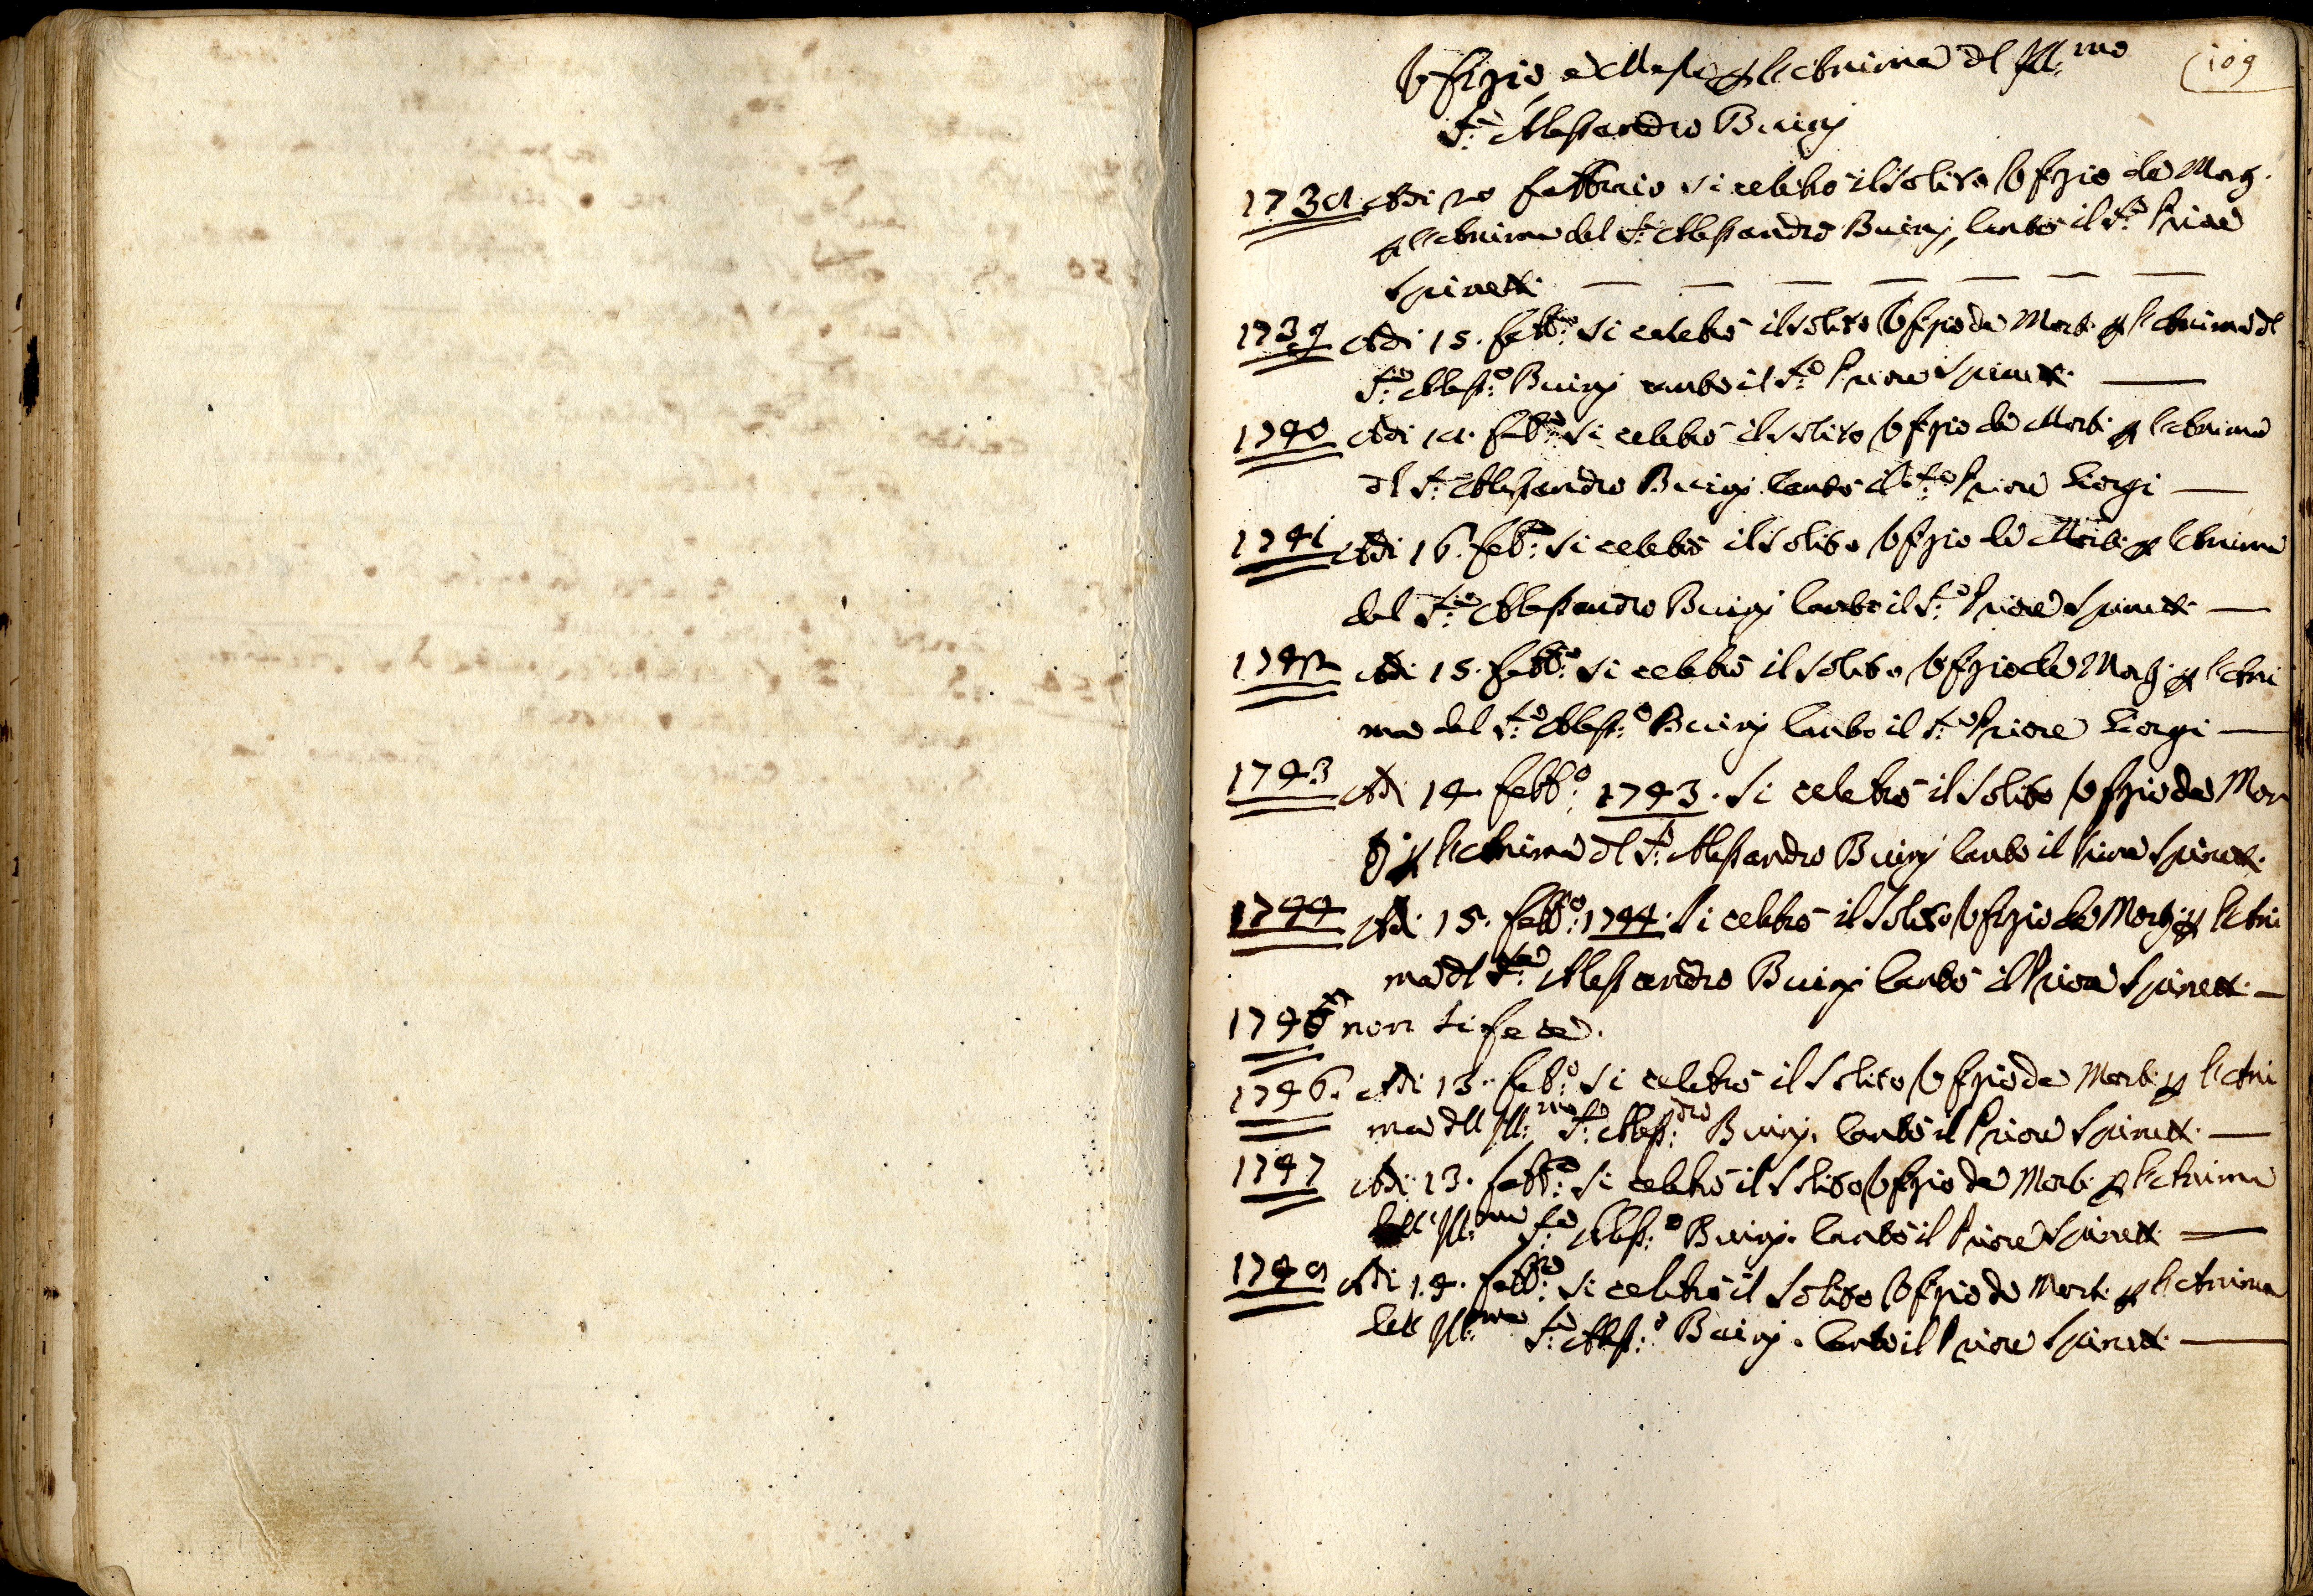 109
Ofizio e Messe p l'Anima dl Ill:mo
S:re Alessandro Buirij
1738. Adi 20 Febbraio si celebrò il solito Ofizio da Morti
p l'Anima del S:re Alessandro Buirij, Cantò il S:re Priore
Spinetti
1739 Adi 15. Febb:o si celebrò il solito Ofizio da Morti p l'Anima dl
S:re Aless:o Buirij cantò il S:re Priore Spinetti
1740 Adi 18. Feb:o si celebrò il solito Ofizio da Morti p l'Anima
dl S:re Alessandro Buirij Cantò il S:re Priore Giorgi
1741 Adi 16. Feb:o si celebrò il solito Ofizio da Morti p l'Anima
del S:re Alessandro Buirij Cantò il S:re Priore Spinetti
1742 Adi 15. Febb:o si celebrò il solito Ofizio da Morti p l'Ani
ma del S:re Aless:o Buirij Cantò il S:re Priore Giorgi
1743 Adi 14. Febb:o 1743. Si celebrò il solito Ofizio da Mor
ti p l'Anima dl S:re Alessandro Buirij Cantò il Priore Spinetti
1744 Adi 15. Febb:o 1744. Si celebrò il solito Ofizio da Morti p l'Ani
ma dl S:re Alessandro Buirij Cantò il Priore Spinetti
1745 non si fece.
1746. Adi 13. Feb:o si celebrò il solito Ofizio da Morti p l'Ani
ma dll Ill:mo S:re Aless:dro Buirij. Cantò il Priore Spinetti
1747 Adi 13. Febb:o si celebrò il solito Ofizio da Morti p l'Anima
dell' Ill:mo S:re Aless:o Buirij. Cantò il Priore Spinetti
1748 Adi 14. Febb:o si celebrò il solito Ofizio da Morti p l'Anima
dell Ill:mo S:re Aless:o Buirij. Cantò il Priore Spinetti